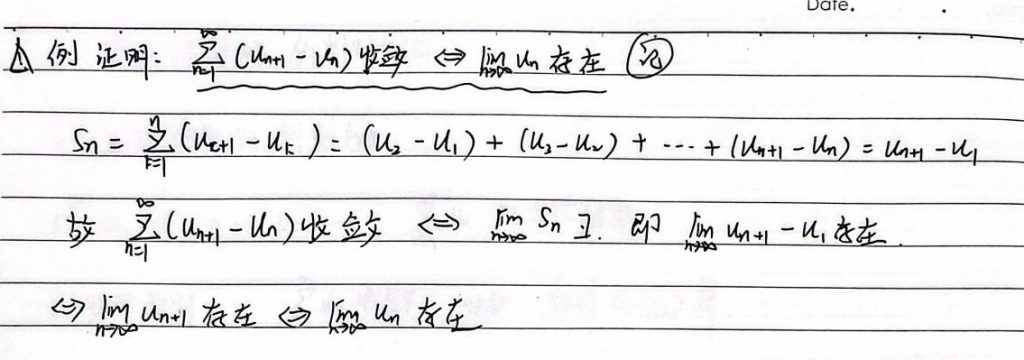 Date.
例 证明: ∑_{n=1}^{∞} (u_{n+1} - u_n) 收敛 ⇔ lim_{n→∞} u_n 存在 记
S_n = ∑_{k=1}^{n} (u_{k+1} - u_k) = (u_2 - u_1) + (u_3 - u_2) + ··· + (u_{n+1} - u_n) = u_{n+1} - u_1
故 ∑_{n=1}^{∞} (u_{n+1} - u_n) 收敛 ⇔ lim_{n→∞} S_n ∃. 即 lim_{n→∞} u_{n+1} - u_1 存在.
⇔ lim_{n→∞} u_{n+1} 存在 ⇔ lim_{n→∞} u_n 存在